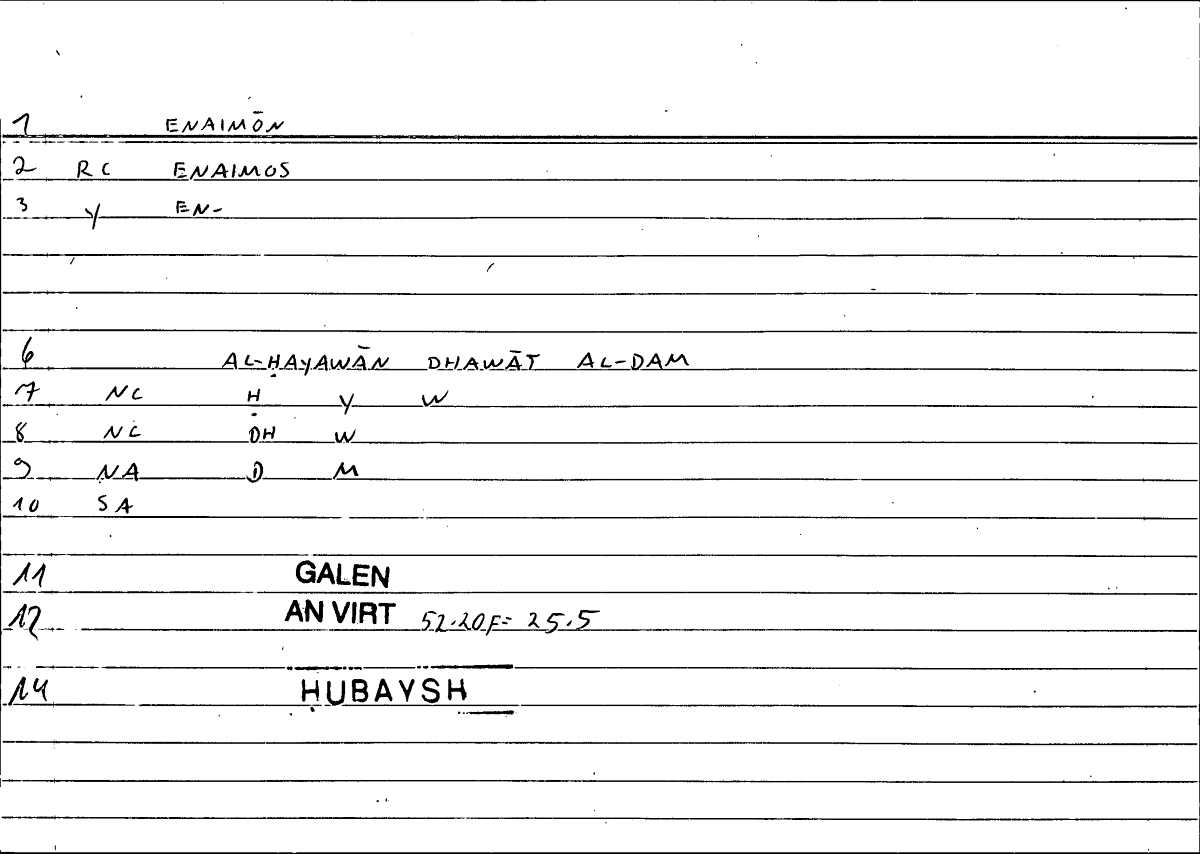 1 ENAIMŌN
2 RC ENAIMOS
3 Y EN-
6 AL-ḤAYAWĀN DHAWĀT AL-DAM
7 NC Ḥ Y W
8 NC DH W
9 NA D M
10 SA
11 GALEN
12 AN VIRT 52.20F= 25.5
14 ḤUBAYSH